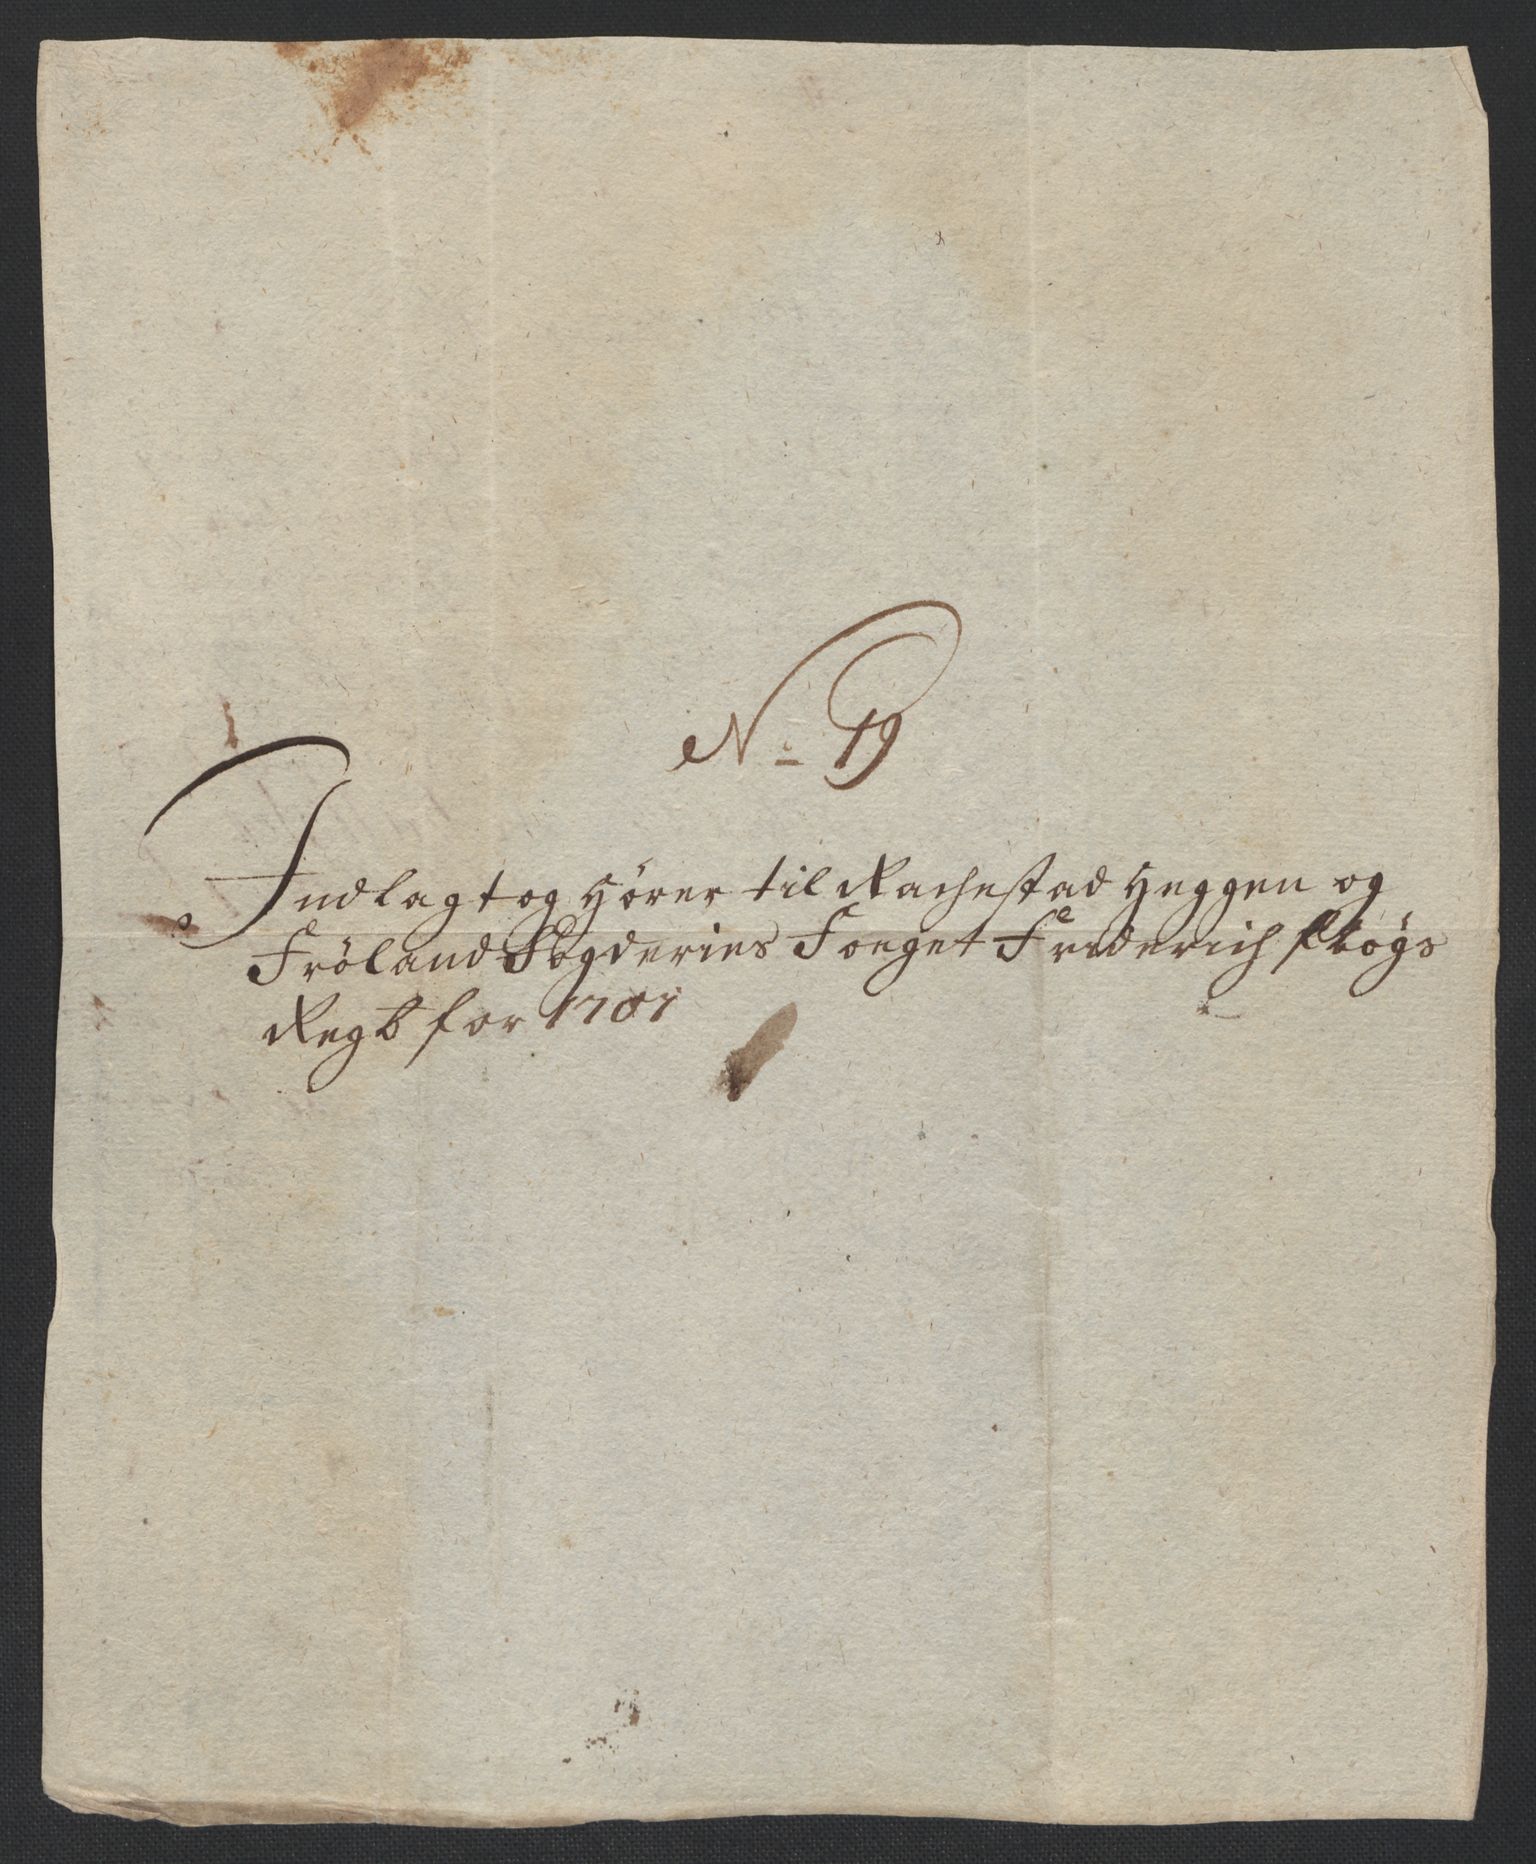 No 19
Indlagt og Hörer til Rachestad Heggen og
Fröland Fogderies Foeget Frederich Ploÿgs
Regb for 1707